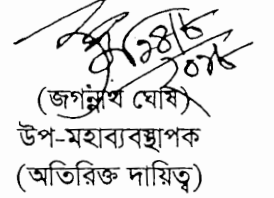 (জগন্নাথ ঘোষ)
উপ-মহাব্যবস্থাপক
(অতিরিক্ত দায়িত্ব)